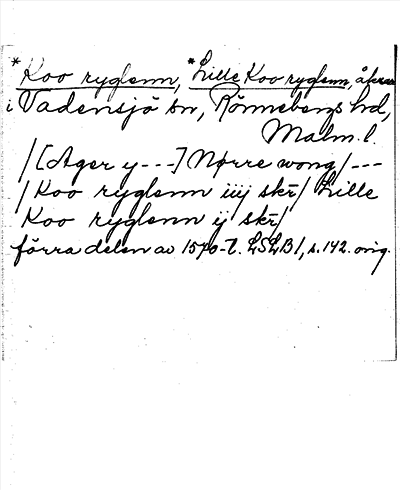 *Koo ryglenn, *Lille Koo ryglenn, åkrar
i Vadensjö sn, Rönnebergs hd,
Malm. l.
/[Ager y---] Nørre wong/---
/Koo ryglenn iiij skr̄/ Lille
Koo ryglenn ij skr̄/
förra delen av 1570-t. LSLB1, s. 142. orig.